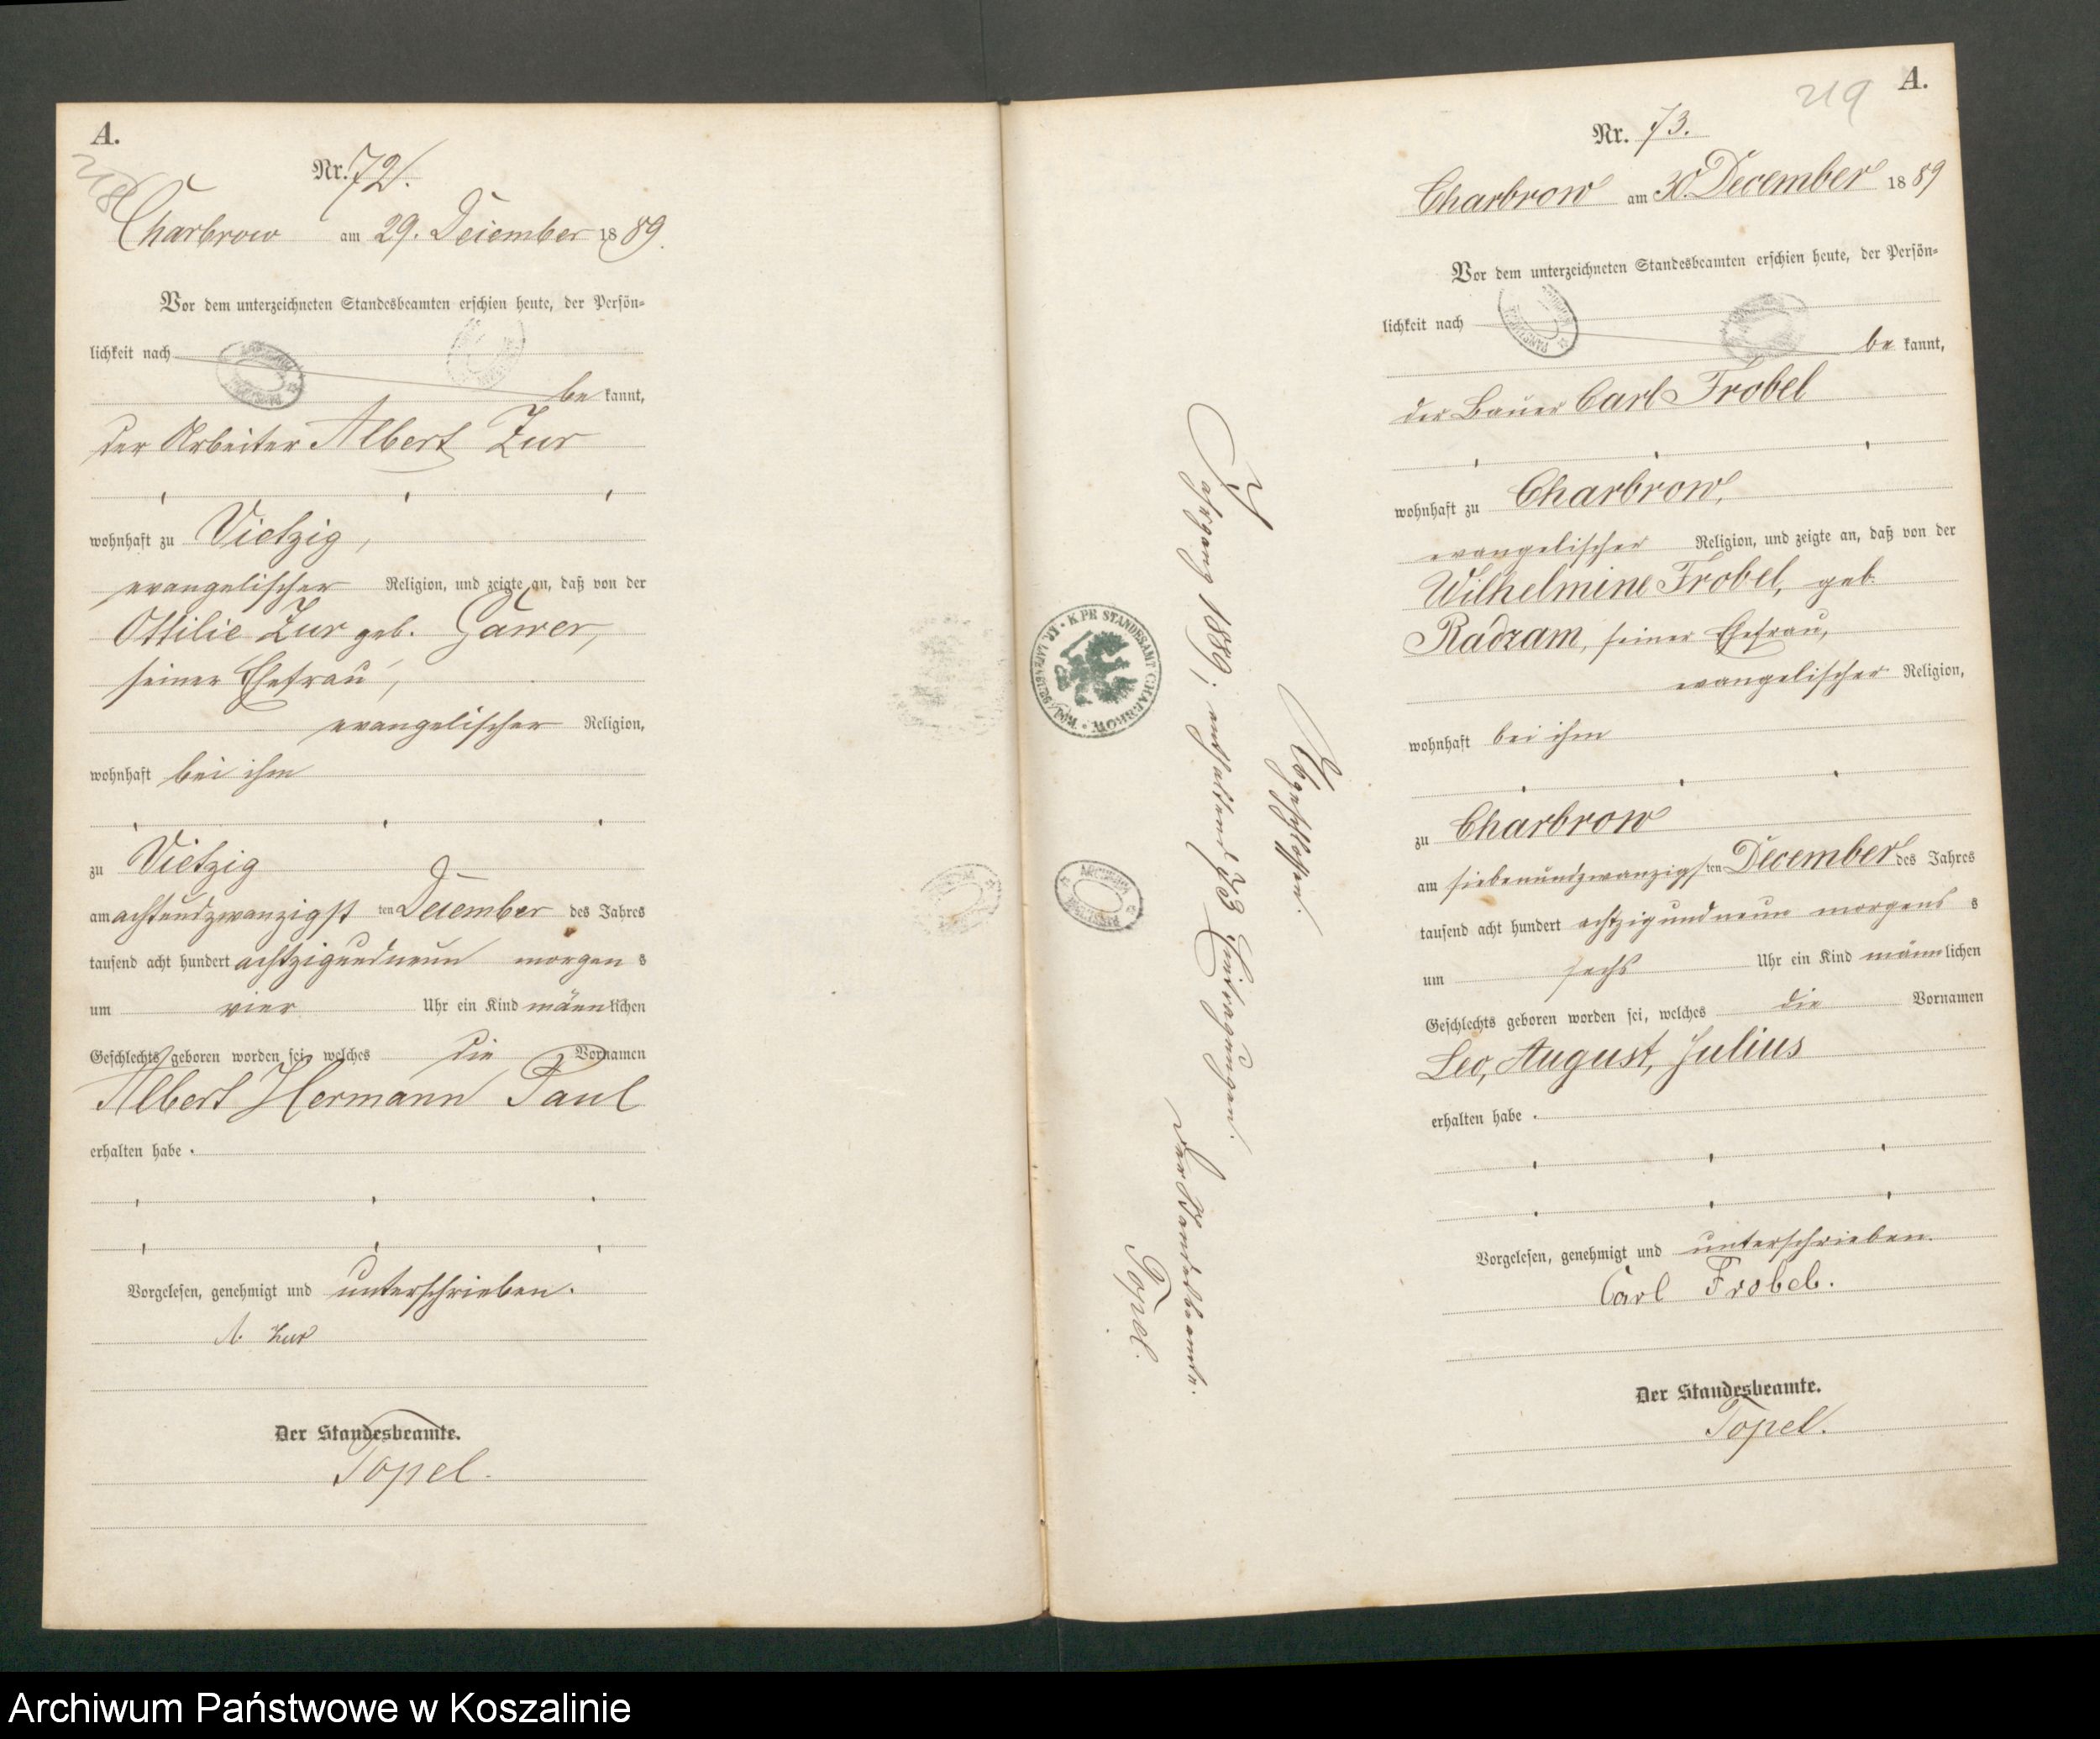 A.
218
Nr. 72.
Charbrow am 29. Dezember 1889.
Vor dem unterzeichneten Standesbeamten erschien heute, der Persön-
lichkeit nach
be kannt,
der Arbeiter Albert Zur
wohnhaft zu Vietzig,
evangelischer Religion, und zeigte an, daß von der
Ottilie Zur geb. Gawer,
seiner Ehefrau,
evangelischer Religion,
wohnhaft bei ihm
zu Vietzig
am achtundzwanzigst ten Dezember des Jahres
tausend acht hundert achtzig und neun morgen s
um vier Uhr ein Kind männlichen
Geschlechts geboren worden sei, welches die Vornamen
Albert Hermann Paul
erhalten habe .
Vorgelesen, genehmigt und unterschrieben.
A. Zur
Der Standesbeamte.
Topel.
Abgeschlossen.
Jahrgang 1889, enthaltend 73 Eintragungen.
Der Standesbeamte.
Topel.
K PR STANDESAMT CHARBROW
219
A.
Nr. 73.
Charbrow am 30. December 1889
Vor dem unterzeichneten Standesbeamten erschien heute, der Persön-
lichkeit nach
be kannt,
der Bauer Carl Frobel
wohnhaft zu Charbrow,
evangelischer Religion, und zeigte an, daß von der
Wilhelmine Frobel, geb.
Radzam, seiner Ehefrau,
evangelischer Religion,
wohnhaft bei ihm
zu Charbrow
am siebenundzwanzigs ten December des Jahres
tausend acht hundert achtzig und neun morgens s
um sechs Uhr ein Kind männlichen
Geschlechts geboren worden sei, welches die Vornamen
Leo, August, Julius
erhalten habe .
Vorgelesen, genehmigt und unterschrieben.
Carl Frobel.
Der Standesbeamte.
Topel.
Archiwum Państwowe w Koszalinie